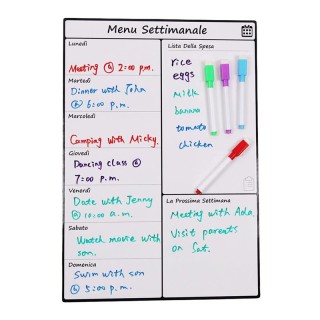 Menu Settimanale
Lunedì
Meeting @ 2:00 p.m.
Martedì
Dinner with John
@ 6:00 p.m.
Mercoledì
Camping with Micky.
Giovedì
Dancing class @
7:00 p.m.
Venerdì
Date with Jenny
@ 10:00 a.m.
Sabato
Watch movie with
son.
Domenica
Swim with son
@ 5:00 p.m.
Lista Della Spesa
rice
eggs
milk
banana
tomato
chicken
La Prossima Settimana
Meeting with Ada.
Visit parents
on Sat.